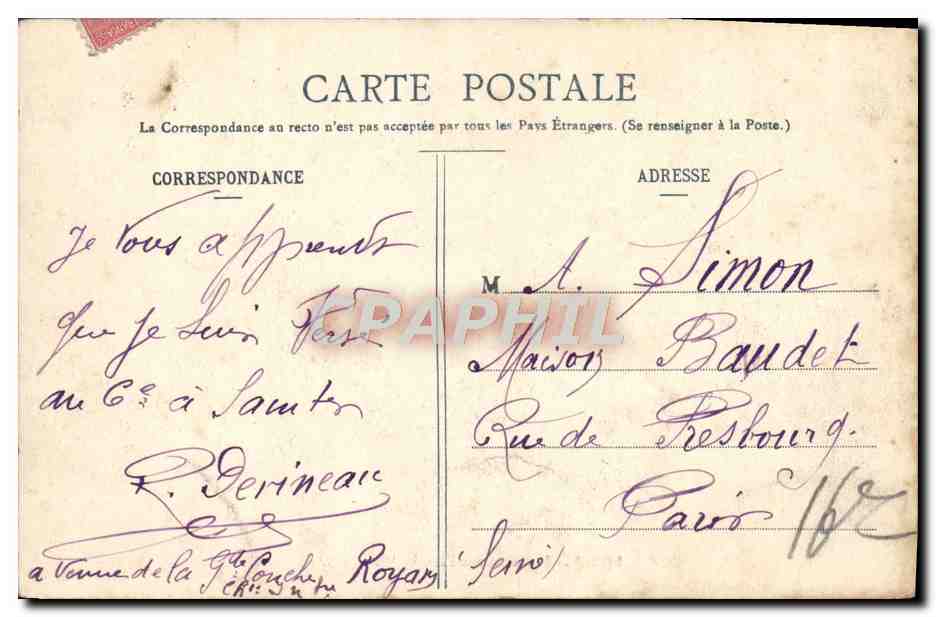 CARTE POSTALE
La Correspondance au recto n'est pas acceptée par tous les Pays Étrangers. (Se renseigner à la Poste.)
CORRESPONDANCE
Je vous apprends
que je suis Versé
au 6e à Saintes
P. Derineau
avenue de la Gde Conche Royan
Chte Inf re
ADRESSE
M A. Simon
Maison Baudet
Rue de Presbourg.
Paris 16e
(Seine)
CPAPHIL